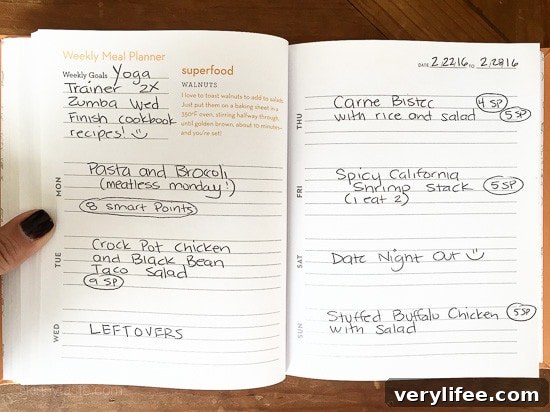 Weekly Meal Planner
Weekly Goals Yoga
Trainer 2X
Zumba Wed
Finish cookbook
recipes!
superfood
WALNUTS
I love to toast walnuts to add to salads.
Just put them on a baking sheet in a
350°F oven, stirring halfway through,
until golden brown, about 10 minutes—
and you're set!
MON
Pasta and Brocoli
(meatless monday!)
8 smart Points
TUE
Crock Pot Chicken
and Black Bean
Taco Salad
9 SP
WED
LEFTOVERS
DATE 2/22/16 TO 2/28/16
THU
Carne Bistec 4 SP
with rice and salad 5 SP
FRI
Spicy California
Shrimp Stack 5 SP
(I eat 2)
SAT
Date Night Out
SUN
Stuffed Buffalo Chicken 5 SP
with salad
verylifee.com